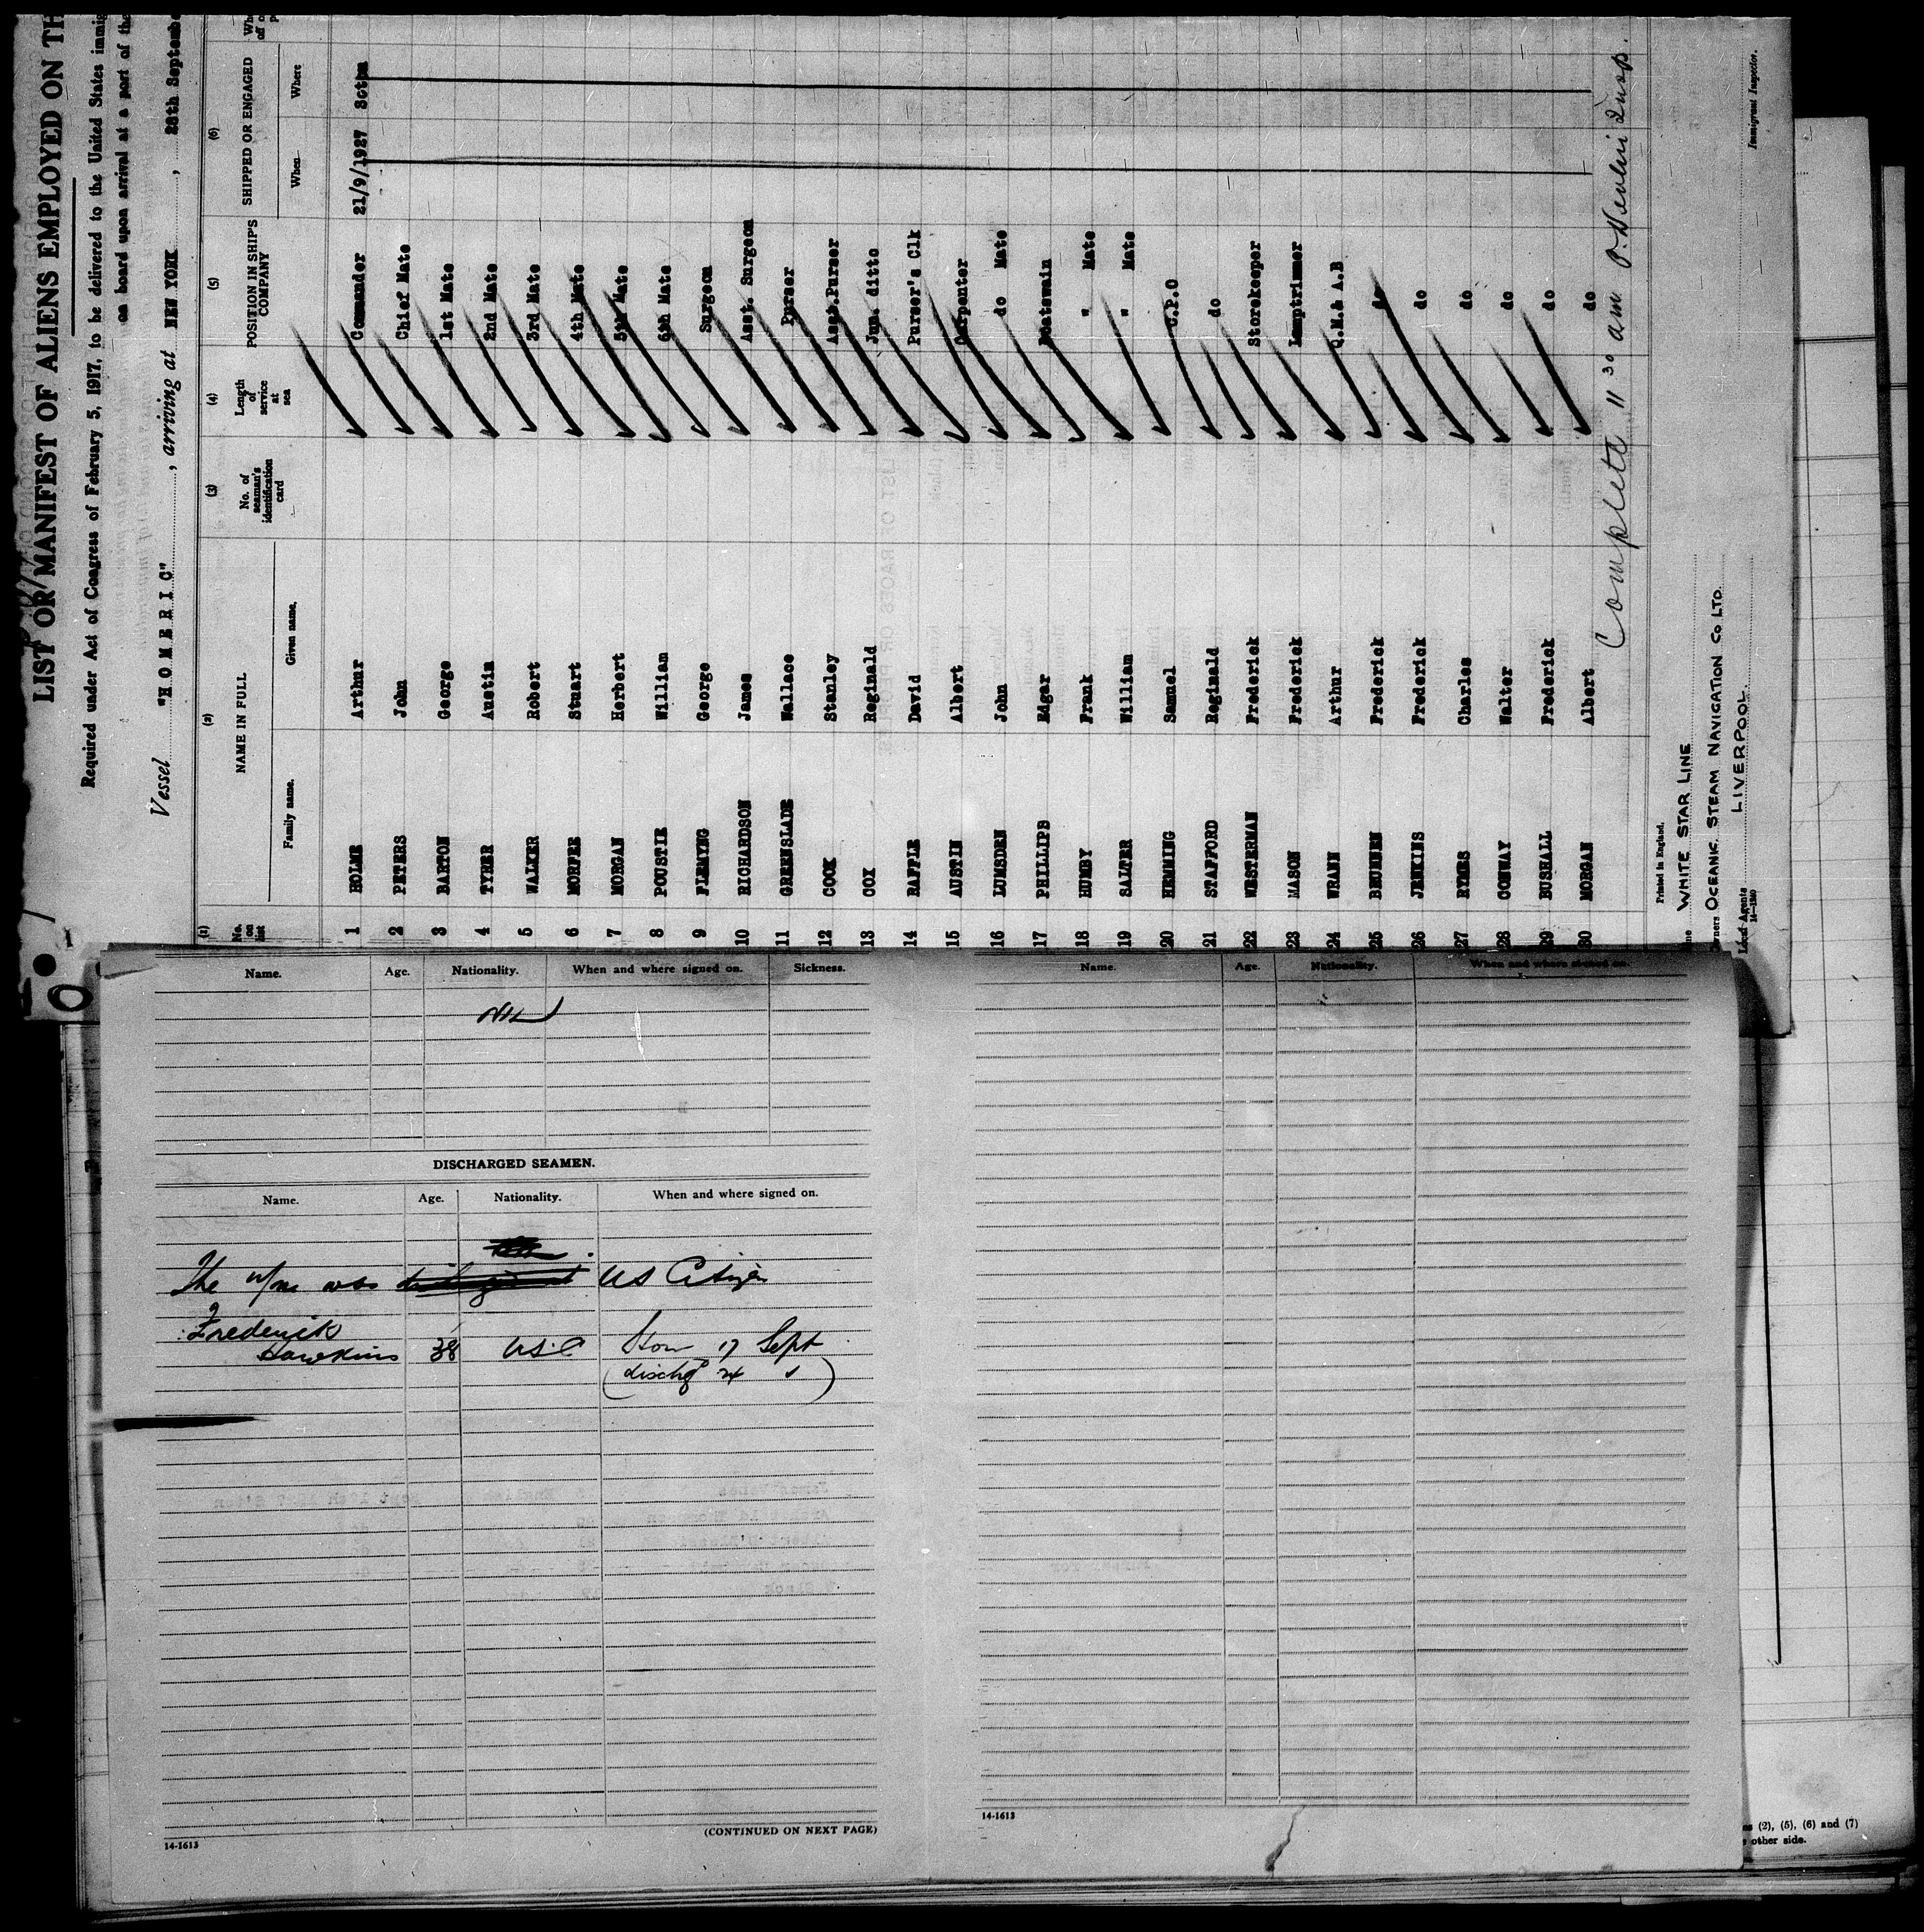 LIST OR MANIFEST OF ALIENS EMPLOYED ON TH
Required under Act of Congress of February 5, 1917, to be delivered to the United States immig
on board upon arrival at a port of the
Vessel "HOMERIC", arriving at NEW YORK, 28th Septembe
(1) (2) (3) (4) (5) (6)
No. on list NAME IN FULL No. of seaman's identification card Length of service at sea POSITION IN SHIP'S COMPANY SHIPPED OR ENGAGED
Family name. Given name. When Where
1 HOLME Arthur Commander 21/9/1927 Sotton
2 PETERS John Chief Mate
3 BARTON George 1st Mate
4 TYRER Austin 2nd Mate
5 WALKER Robert 3rd Mate
6 MORFEE Stuart 4th Mate
7 MORGAN Herbert 5th Mate
8 POUSTIE William 6th Mate
9 FLEMYNG George Surgeon
10 RICHARDSON James Asst. Surgeon
11 GREENSLADE Wallace Purser
12 COOK Stanley Asst.Purser
13 COX Reginald Jun. ditto
14 RAFFLE David Purser's Clk
15 AUSTIN Albert Carpenter
16 LUMSDEN John do Mate
17 PHILLIPS Edgar Boatswain
18 HUMBY Frank " Mate
19 SALTER William " Mate
20 HEMMING Samuel C.P.O
21 STAFFORD Reginald do
22 WESTERMAN Frederick Storekeeper
23 MASON Frederick Lamptrimmer
24 WRANN Arthur Q.M.& A.B
25 Frederick do
26 JENKINS Frederick do
27 RYMES Charles do
28 CONWAY Walter do
29 BUSHALL Frederick do
30 MORGAN Albert do
Complett 11 30 am P. Devlin Insp.
Printed in England.
WHITE STAR LINE
Owners OCEANIC STEAM NAVIGATION CO LTD.
Local Agents LIVERPOOL.
14—1240
Immigrant Inspector.
Name. Age. Nationality. When and where signed on. Sickness.
NIL
DISCHARGED SEAMEN.
Name. Age. Nationality. When and where signed on.
The u/m was US Citizen
Frederick
Hawkins 38 USC Ston 17 Sept
(dischgd 24 ")
(CONTINUED ON NEXT PAGE)
14-1613
Name. Age. Nationality. When and where signed on.
14-1613
(2), (5), (6) and (7)
other side.